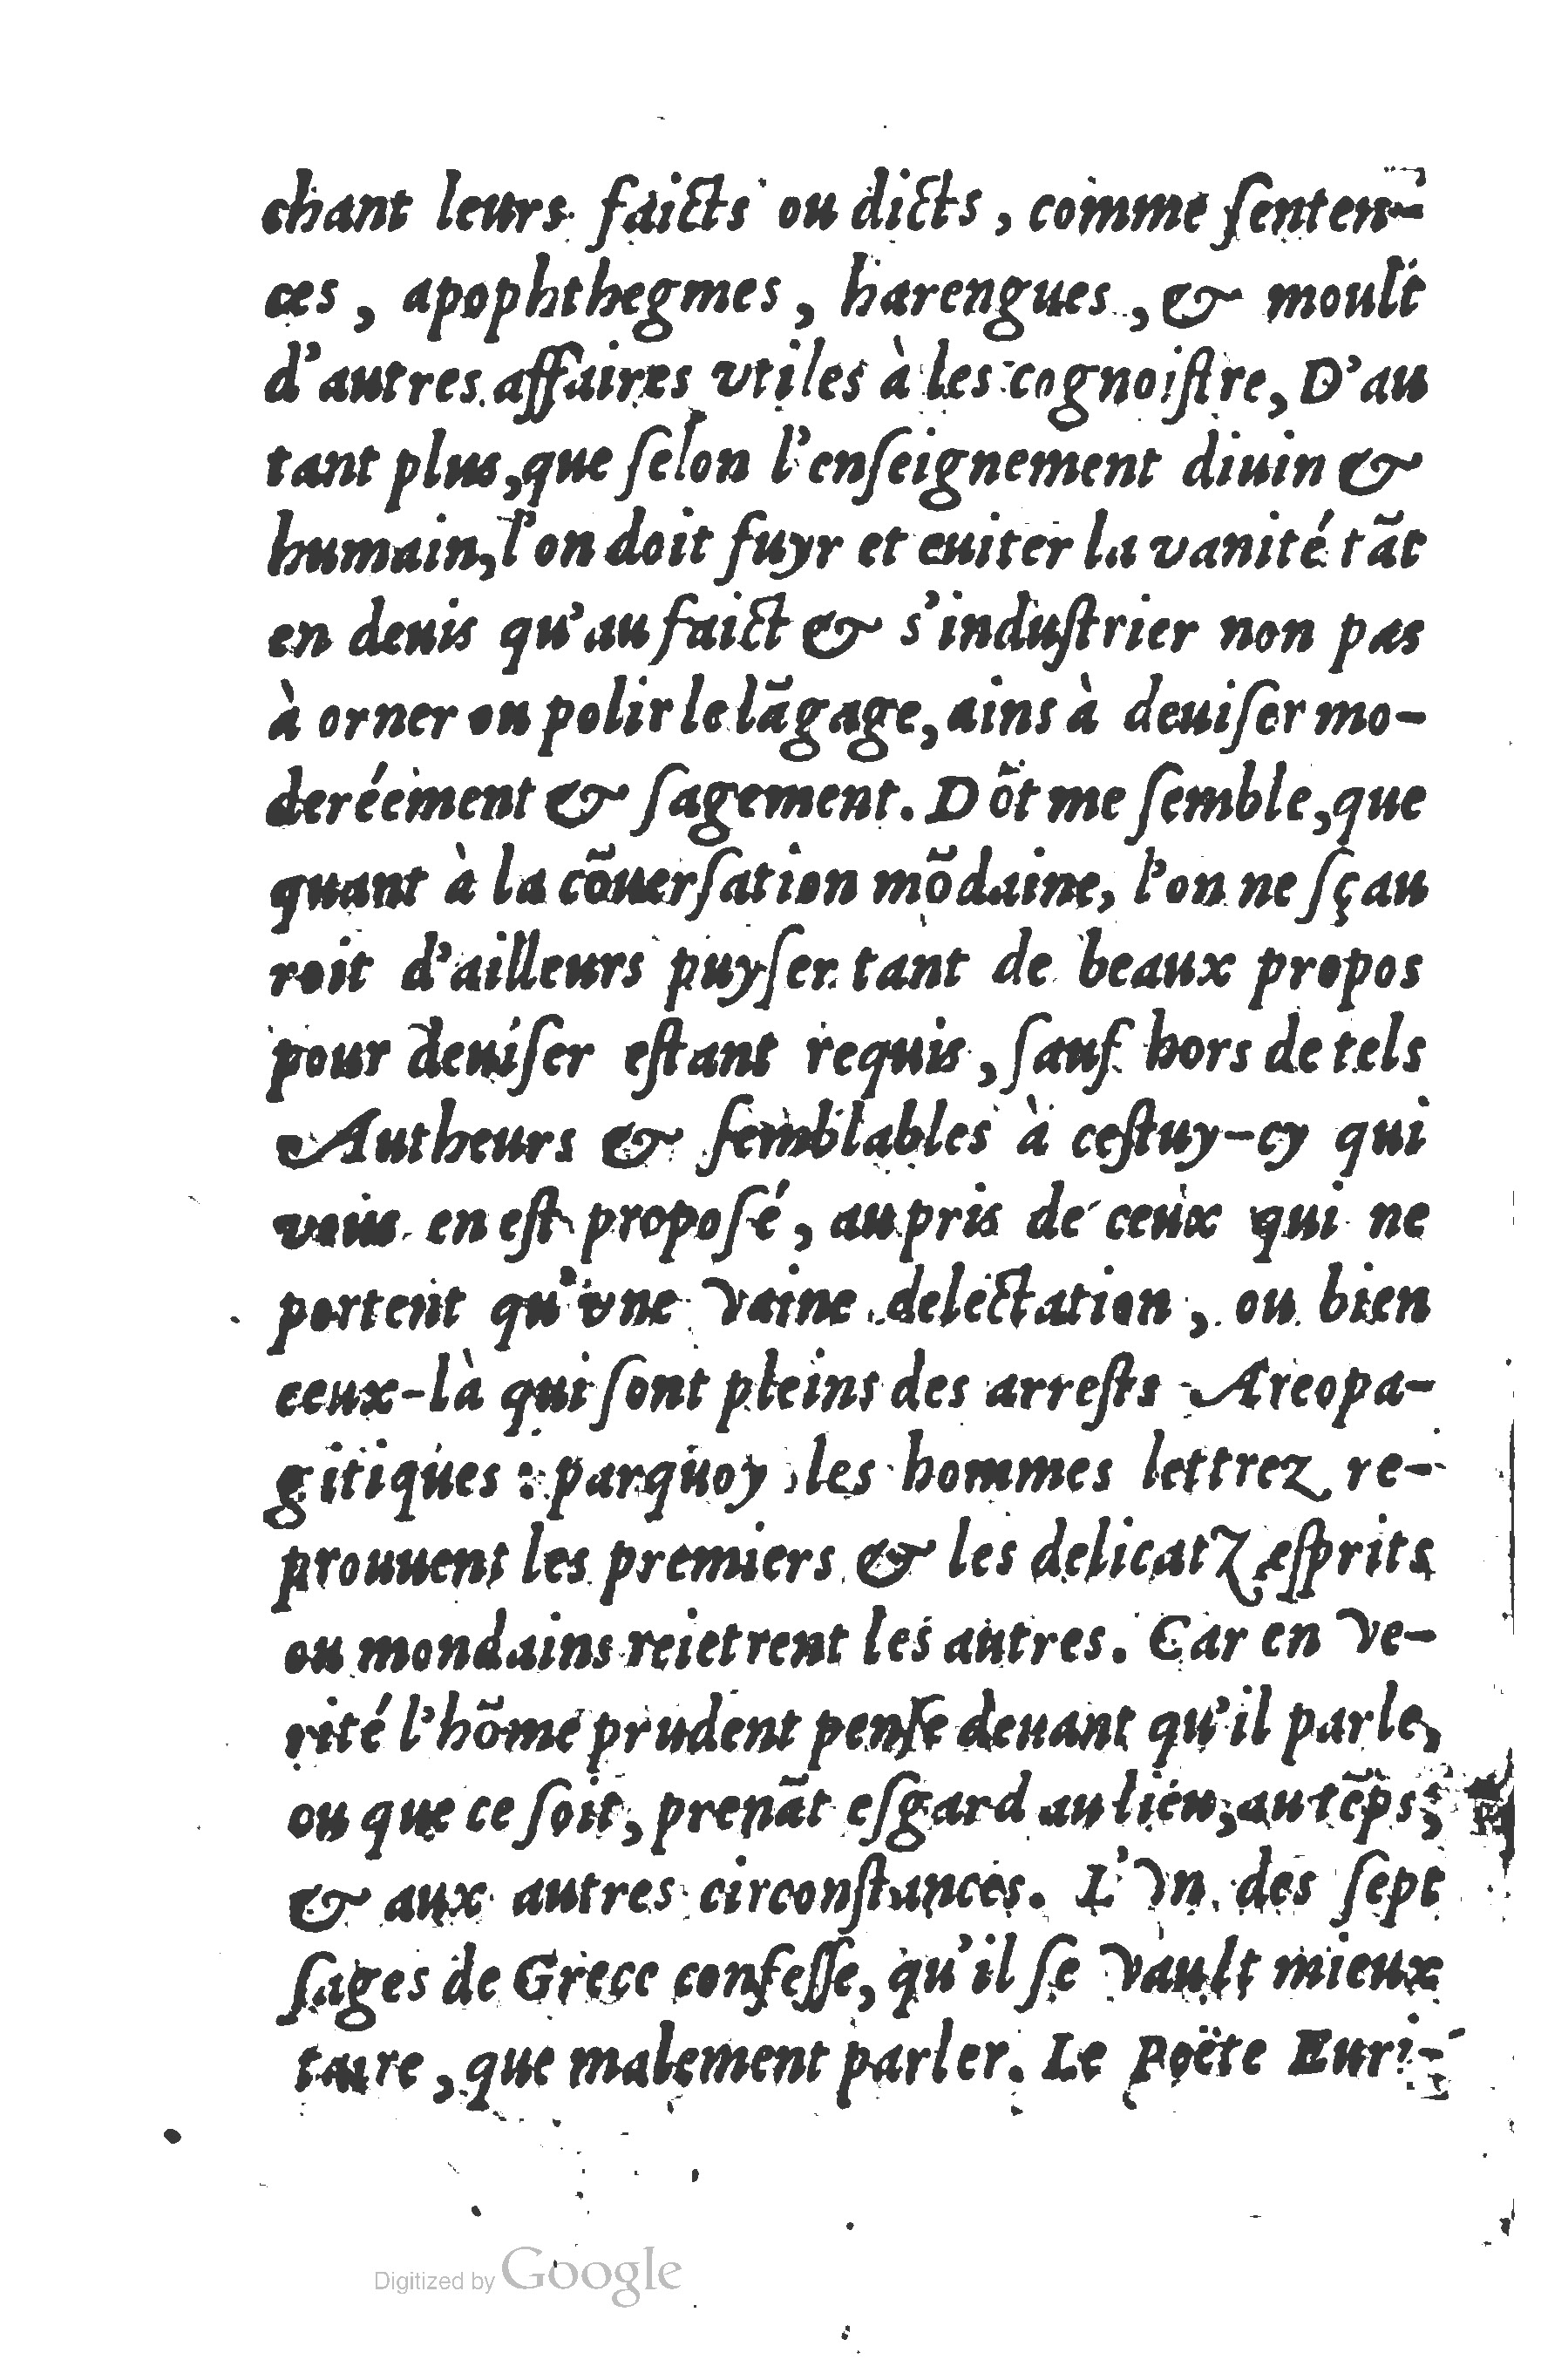 chant leurs faicts ou dicts, comme ſenten-
ces, apophthegmes, harengues, & moult
d'autres affaires vtiles à les cognoiſtre, D'au
tant plus, que ſelon l'enſeignement diuin &
humain, l'on doit fuyr et euiter la vanité tãt
en deuis qu'au faict & s'induſtrier non pas
à orner ou polir le lãgage, ains à deuiſer mo-
deréement & ſagement. Dõt me ſemble, que
quant à la cõuerſation mõdaine, l'on ne ſçau
roit d'ailleurs puyſer tant de beaux propos
pour deuiſer eſtant requis, ſauf hors de tels
Autheurs & ſemblables à ceſtuy-cy qui
vous en eſt propoſé, au pris de ceux qui ne
portent qu'vne vaine delectation, ou bien
ceux-là qui ſont pleins des arreſts Areopa-
gitiques : parquoy les hommes lettrez re-
prouuent les premiers & les delicatz eſprits
ou mondains reiettent les autres. Car en ve-
rité l'hõme prudent penſe deuant qu'il parle,
ou que ce ſoit, prenãt eſgard au lieu, au tẽps,
& aux autres circonſtances. L'vn des ſept
ſages de Grece confeſſe, qu'il ſe vault mieux
taire, que malement parler. Le Poëte Euri-
Digitized by Google